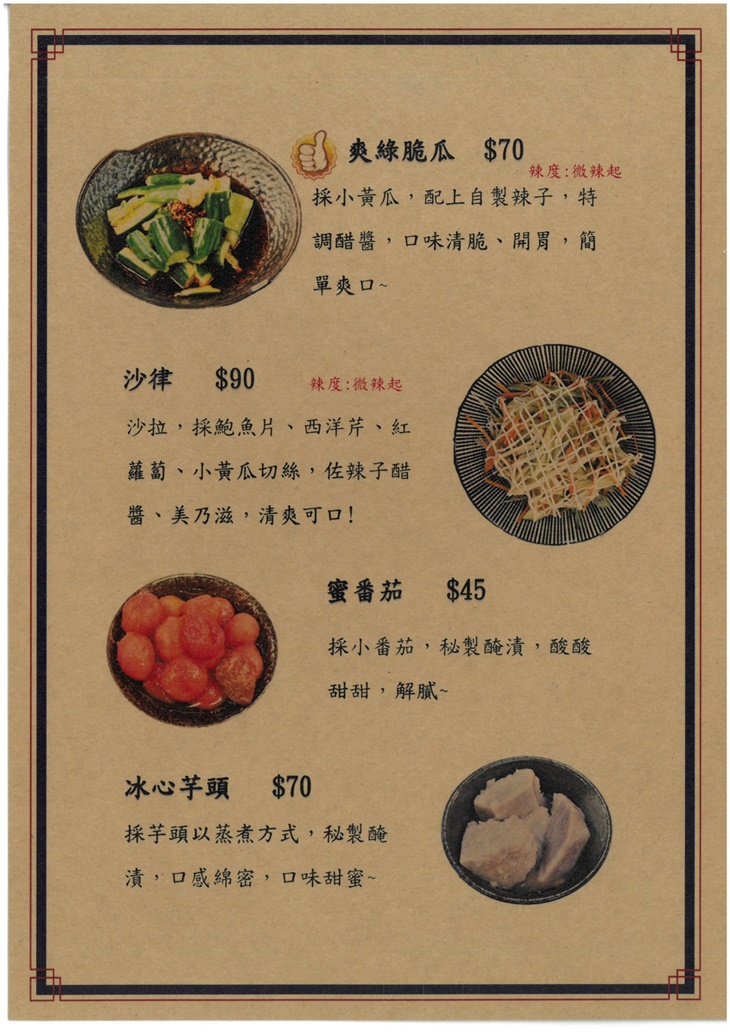 爽綠脆瓜 $70
辣度:微辣起
採小黃瓜,配上自製辣子,特
調醋醬,口味清脆、開胃,簡
單爽口~
沙律 $90 辣度:微辣起
沙拉,採鮑魚片、西洋芹、紅
蘿蔔、小黃瓜切絲,佐辣子醋
醬、美乃滋,清爽可口!
蜜番茄 $45
採小番茄,秘製醃漬,酸酸
甜甜,解膩~
冰心芋頭 $70
採芋頭以蒸煮方式,秘製醃
漬,口感綿密,口味甜蜜~